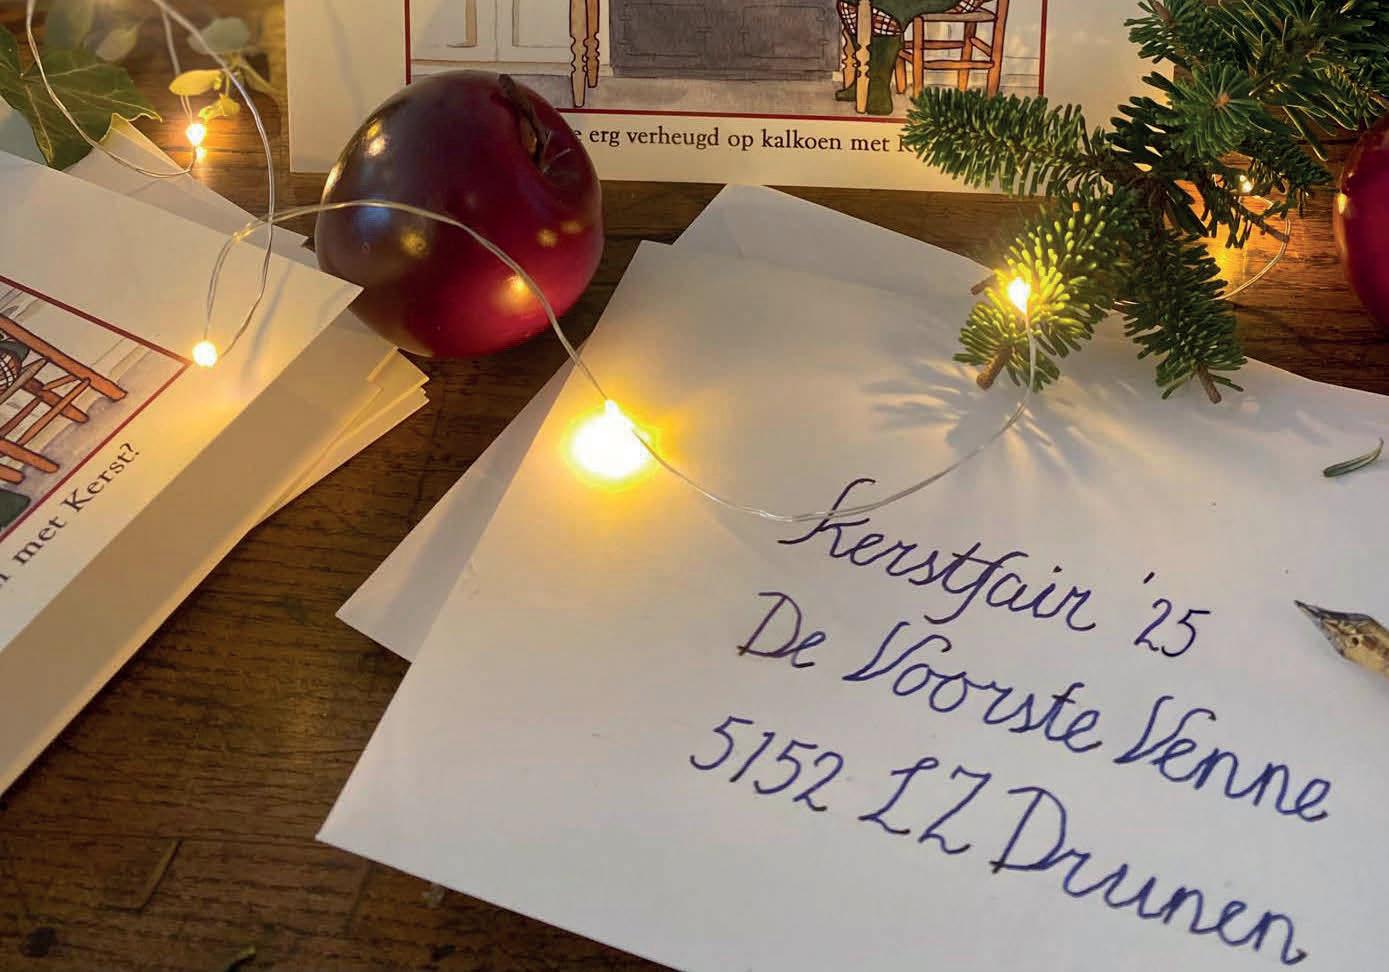 erg verheugd op kalkoen met
met Kerst?
Kerstfair '25
De Voorste Venne
5152 LZ Drunen